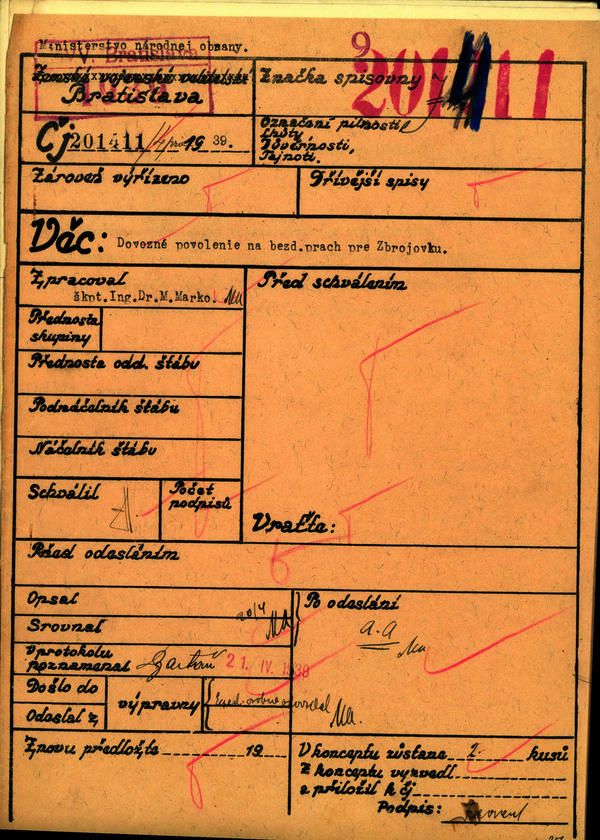 Ministerstvo národnej obrany.
Bratislava
Zemské vojenské velitelství
Bratislava
Značka spisovny
9
201411
Čj 201411/4 prez. 1939.
Označení pilnosti,
Lhůty,
Důvěrnosti,
Tajnoti.
Zároveň vyřízeno
Dřívější spisy
Věc: Dovozné povolenie na bezd.prach pre Zbrojovku.
Zpracoval
škpt.Ing.Dr.M.Marko.
Před schválením
Přednosta
skupiny
Přednosta odd. štábu
Podnáčelník štábu
Náčelník štábu
Schválil
Počet
podpisů
Vraťte:
Před odesláním
Opsal
Po odeslání
Srovnal
20/4
a.a
V protokolu
poznamenal
21. IV. 1939
Došlo do
výpravny
Odeslal z
Znovu předložte 19
V konceptu zůstane 2 kusů
Z konceptu vyzvedl
a přiložil k čj
Podpis: